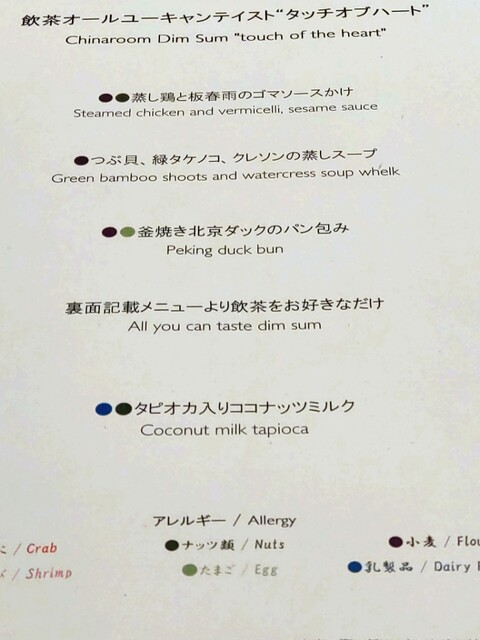 飲茶オールユーキャンテイスト“タッチオブハート”
Chinaroom Dim Sum "touch of the heart"
●●蒸し鶏と板春雨のゴマソースかけ
Steamed chicken and vermicelli, sesame sauce
●つぶ貝、緑タケノコ、クレソンの蒸しスープ
Green bamboo shoots and watercress soup whelk
●●釜焼き北京ダックのパン包み
Peking duck bun
裏面記載メニューより飲茶をお好きなだけ
All you can taste dim sum
●●タピオカ入りココナッツミルク
Coconut milk tapioca
アレルギー / Allergy
に / Crab
●ナッツ類 / Nuts
●小麦 / Flou
/ Shrimp
●たまご / Egg
●乳製品 / Dairy